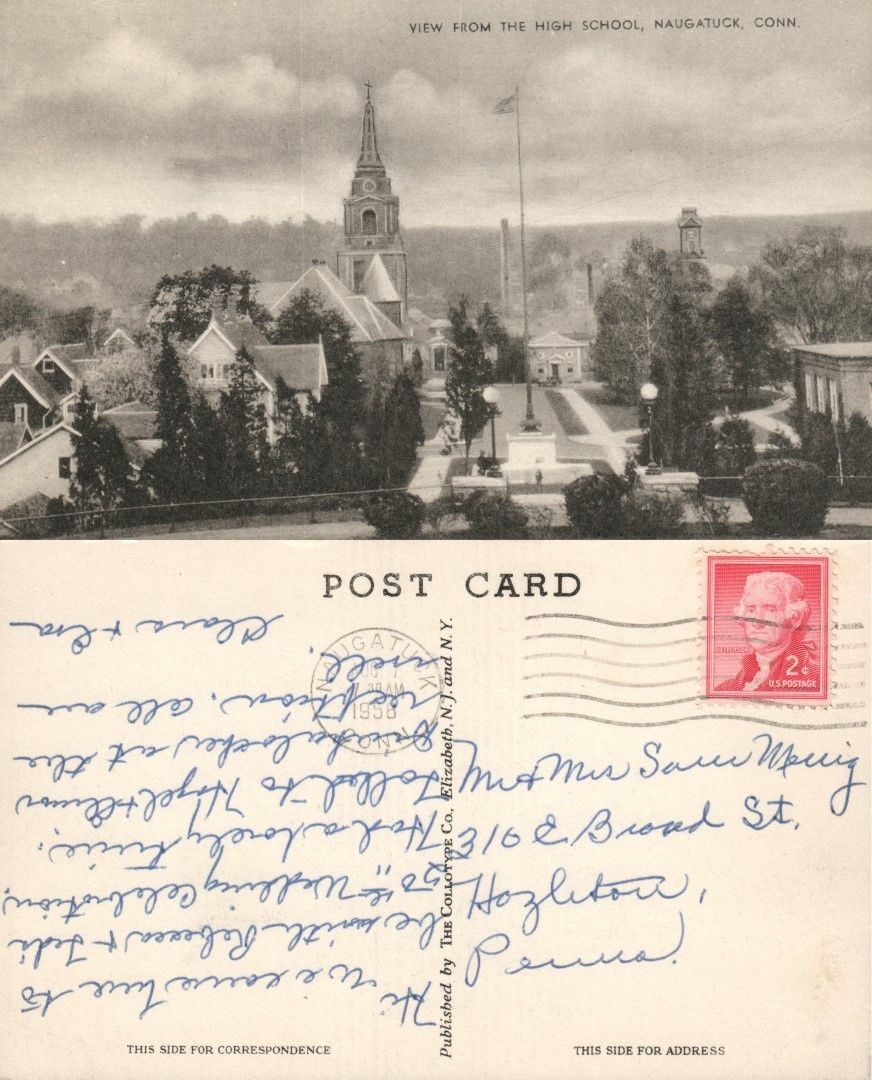 VIEW FROM THE HIGH SCHOOL, NAUGATUCK, CONN.
POST CARD
Hi
We came here to
be with Rebecca &
50th Wedding Celebration,
Had a lovely time,
Talked to Hazel & Elmer
at the
reception. All are
well.
Clara & Ira
Published by THE COLLOTYPE Co., Elizabeth, N.J. and N.Y.
NAUGATUCK
AM
CONN
JEFFERSON
2¢
U.S. POSTAGE
Mr & Mrs Sam
310 E Broad St,
Hazleton,
Penna.
THIS SIDE FOR CORRESPONDENCE
THIS SIDE FOR ADDRESS